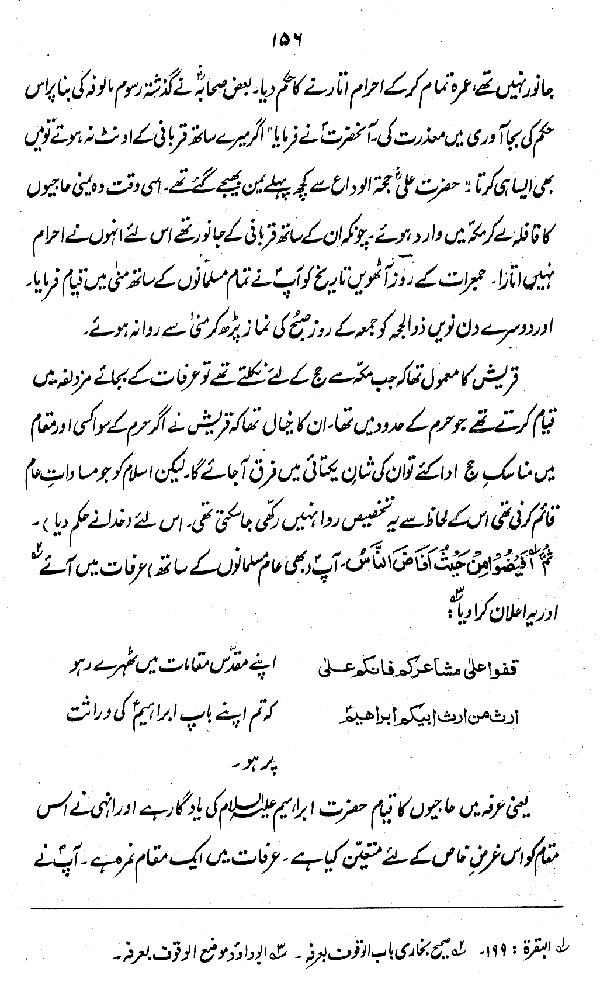 ۱۵۶
جانور نہیں تھے، عمرہ تمام کر کے احرام اتارنے کا حکم دیا۔ بعض صحابہؓ نے گذشتہ رسوم مالوفہ کی بنا پر اس
حکم کی بجا آوری میں معذرت کی۔ آنحضرتؐ نے فرمایا "اگر میرے ساتھ قربانی کے اونٹ نہ ہوتے تو میں
بھی ایسا ہی کرتا"؛ حضرت علیؓ حجۃ الوداع سے کچھ پہلے یمن بھیجے گئے تھے۔ اسی وقت وہ یمنی حاجیوں
کا قافلہ لے کر مکہ میں وارد ہوئے۔ چونکہ ان کے ساتھ قربانی کے جانور تھے اس لئے انہوں نے احرام
نہیں اتارا۔ جمعرات کے روز آٹھویں تاریخ کو آپؐ نے تمام مسلمانوں کے ساتھ منیٰ میں قیام فرمایا۔
اور دوسرے دن نویں ذوالحجہ کو جمعہ کے روز صبح کی نماز پڑھ کر منیٰ سے روانہ ہوئے۔
قریش کا معمول تھا کہ جب مکہ سے حج کے لئے نکلتے تھے تو عرفات کے بجائے مزدلفہ میں
قیام کرتے تھے جو حرم کے حدود میں تھا، ان کا خیال تھا کہ قریش نے اگر حرم کے سوا کسی اور مقام
میں مناسکِ حج ادا کئے تو ان کی شانِ یکتائی میں فرق آ جائے گا۔ لیکن اسلام کو جو مساداتِ عام
قائم کرنی تھی اس کے لحاظ سے یہ تخصیص روا نہیں رکھی جا سکتی تھی۔ اس لئے (خدا نے حکم دیا)۔
ثُمَّ اَفِیْضُوْا مِنْ حَیْثُ اَفَاضَ النَّاسُ۔ آپؐ (بھی عام مسلمانوں کے ساتھ) عرفات میں آئے ۲؎
اور یہ اعلان کرا دیا ۳؎:
قفوا علی مشاعرکم فانکم علی اپنے مقدّس مقامات میں ٹھہرے رہو
ارث من ارث ابیکم ابراھیمؑ کہ تم اپنے باپ ابراہیمؑ کی وراثت
پر ہو۔
یعنی عرفہ میں حاجیوں کا قیام حضرت ابراہیم علیہ السلام کی یادگار ہے اور انہی نے اس
مقام کو اس غرضِ خاص کے لئے متعیّن کیا ہے۔ عرفات میں ایک مقام نمرہ ہے۔ آپؐ نے
۱؎ البقرۃ: ۱۹۹۔ ۲؎ صحیح بخاری باب الوقوف بعرفہ۔ ۳؎ ابوداؤد موضع الوقوف بعرفہ۔